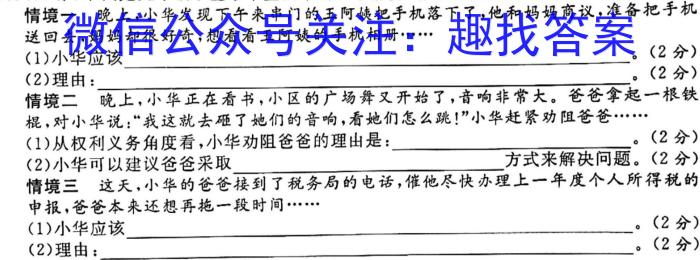 情境一 晚上,小华发现下午来串门的王阿姨把手机落下了,他和妈妈商议,准备把手机
送回去,妈妈却很好奇,想看看王阿姨的手机相册……
微信公众号关注：趣找答案
(1)小华应该。(2分)
(2)理由:。(2分)
情境二 晚上,小华正在看书,小区的广场舞又开始了,音响非常大。爸爸拿起一根铁
棍,对小华说:“我这就去砸了她们的音响,看她们怎么跳!”小华赶紧劝阻爸爸……
(1)从权利义务角度看,小华劝阻爸爸的理由是:。(2分)
(2)小华可以建议爸爸采取方式来解决问题。(2分)
情境三 这天,小华的爸爸接到了税务局的电话,催他尽快办理上一年度个人所得税的
申报,爸爸本来还想再拖一段时间……
(1)小华应该。(2分)
(2)理由:。(2分)